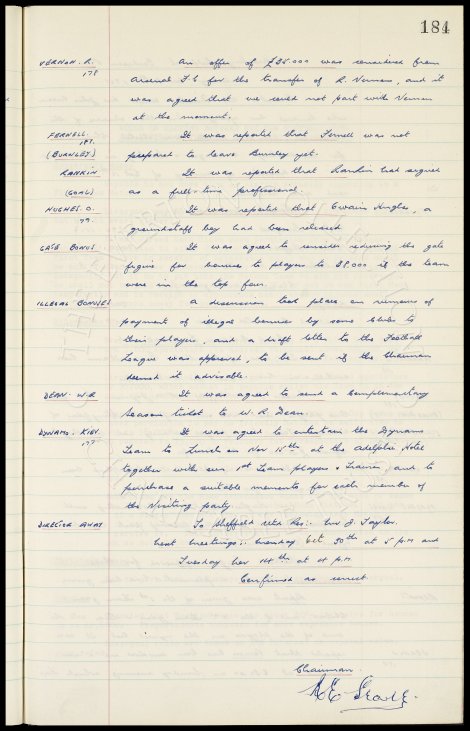 184
VERNON. R. An offer of £35.000 was received from
178 Arsenal F.C for the transfer of R. Vernon, and it
was agreed that we could not part with Vernon
at the moment.
FERNELL. It was reported that Fernell was not
(BURNLEY) prepared to leave Burnley yet.
RANKIN It was reported that Rankin had signed
(GOAL) as a full-time professional.
HUGHES. O. It was reported that Owain Hughes, a
79. groundstaff boy had been released
GATE BONUS. It was agreed to consider reducing the gate
figure for bonuses to players to 38,000 if the team
were in the top four.
ILLEGAL BONUSES A discussion took place on rumours of
payment of illegal bonuses by some Clubs to
their players, and a draft letter to the Football
League was approved, to be sent if the Chairman
deemed it advisable.
DEAN. W.R It was agreed to send a Complimentary
Season ticket to W. R Dean.
DYNAMO. KIEV. It was agreed to entertain the Dynamo
177 Team to Lunch on Nov 15th at the Adelphi Hotel
together with our 1st Team players & Trainer, and to
purchase a suitable memento for each member of
the Visiting party.
DIRECTOR AWAY To Sheffield Utd Res:- Mr J. Taylor.
Next Meetings:- Monday Oct 30th at 5 p.m and
Tuesday Nov 14th at 4 p.m
Confirmed as correct
Chairman.